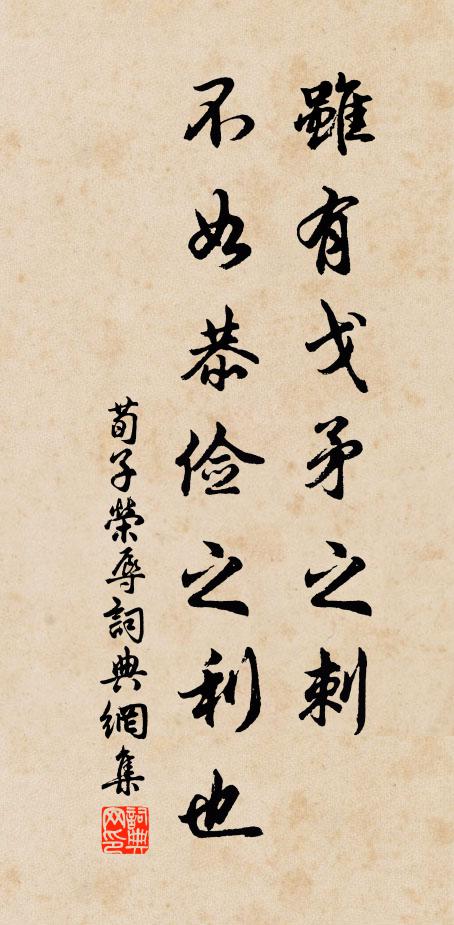 雖有戈矛之刺
不如恭儉之利也
荀子榮辱詞典網集
詞典
网印